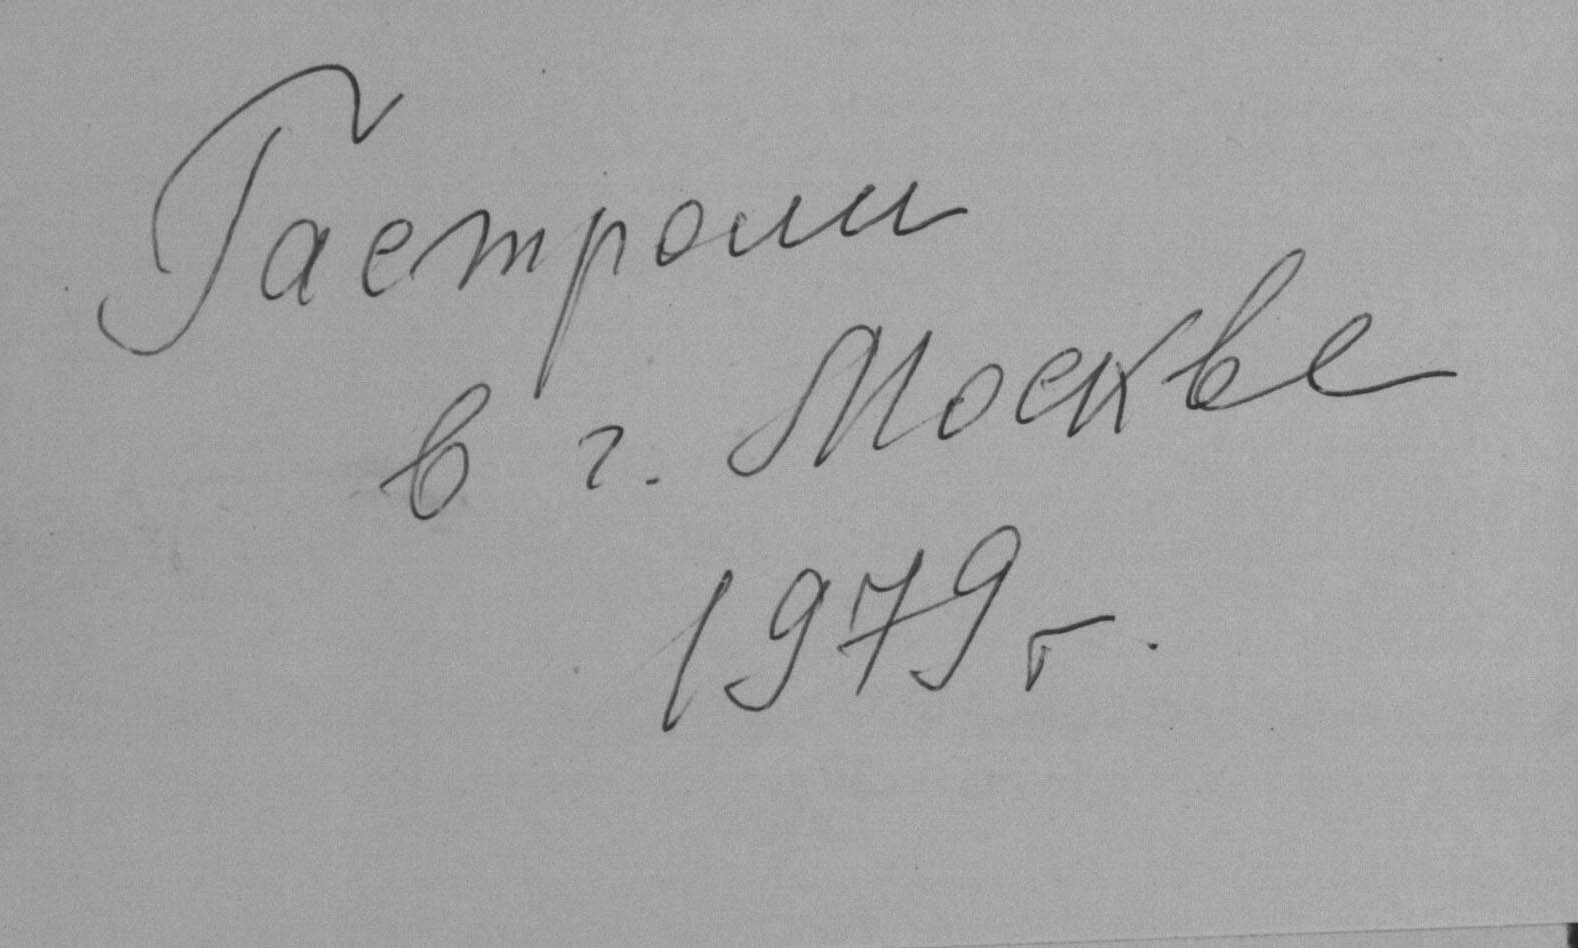 Гастроли
в г. Москве
1979 г.